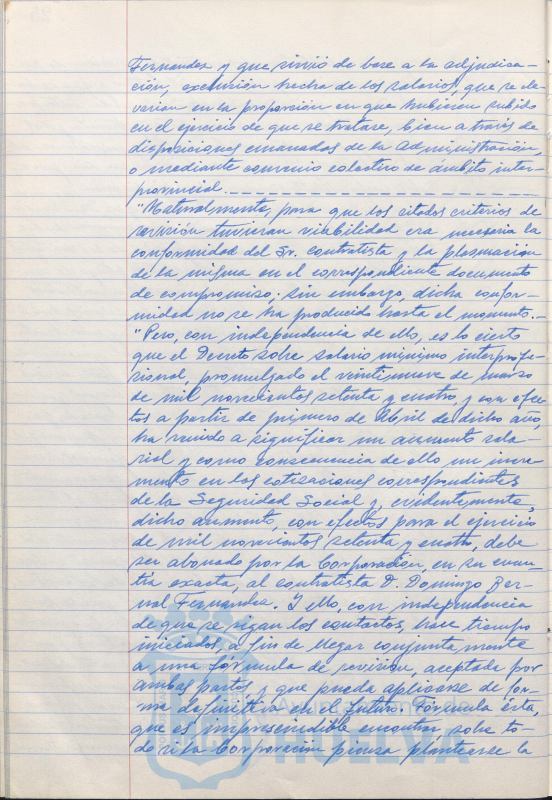 Fernandez y que sirvió de base a la adjudica-
ción, exclusión hecha de los salarios, que se ele-
varian en la proporción en que hubiesen subido
en el ejercicio de que se tratase, bien a través de
disposiciones emanadas de la Administración,
o mediante convenio colectivo de ámbito inter-
provincial.
"Naturalmente, para que los citados criterios de
revisión tuvieran viabilidad era necesaria la
conformidad del Sr. contratista y la plasmación
de la misma en el correspondiente documento
de compromiso; sin embargo, dicha confor-
midad no se ha producido hasta el momento.-
"Pero, con independencia de ello, es lo cierto
que el Decreto sobre salario mínimo interprofe-
sional, promulgado el veintinueve de marzo
de mil novecientos setenta y cuatro, y con efec-
tos a partir de primero de Abril de dicho año,
ha venido a significar un aumento sala-
rial y como consecuencia de ello un incre-
mento en las cotizaciones correspondientes
de la Seguridad Social y, evidentemente,
dicho aumento, con efectos para el ejercicio
de mil novecientos setenta y cuatro, debe
ser abonado por la Corporación, en su cuan-
tía exacta, al contratista D. Domingo Ber-
nal Fernandez. Y ello, con independencia
de que se sigan los contactos, hace tiempo
iniciados, a fin de llegar conjuntamente
a una fórmula de revisión, aceptada por
ambas partes y que pueda aplicarse de for-
ma definitiva en el futuro. Fórmula ésta,
que es imprescindible encontrar, sobre to-
do si la Corporación piensa plantearse la
HUELVA